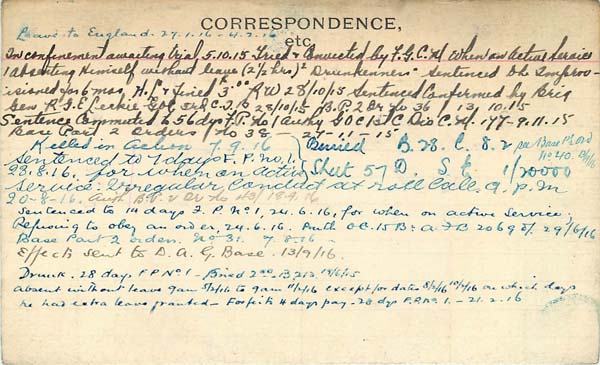 CORRESPONDENCE,
Leave to England. 27.1.16 - 4.2.16
etc.
In confinement awaiting trial 5.10.15 Tried & Convicted by F.G.C.M. When on Active Service
1 Absenting Himself without leave (2 1/2 hrs) 2 Drunkenness Sentenced to be Impris-
isoned for 6 mos. H.L. & Fined 28/10/15 Sentence Confirmed by Brig
Gen R.G.E. Leckie GOC 3rd C.I.B 28/10/15 B.P.2 36 / 13.10.15
Sentence Commuted to 56 dys F.P. No 1 Authy GOC 1st C Div C.M. 177-9.11.15
Base Part 2 Orders / No 38 - 27-11-15
Killed in Action 7.9.16 Buried B.28. C. 8.2
Sentenced to 7 days F.P. No. 1. Sheet 57 D. S. E 1/20000
23.8.16. for when on active
service: Irregular Conduct at roll call 9. p.m
20-8-16.
Sentenced to 14 days F.P. No 1, 24.6.16, for when on active service,
Refusing to obey an order, 24.6.16. Auth OC. 15 B: A.F.B 2069 29/6/16
Base Part 2 orders. No 31. 7.8.16 -
Effects sent to D. A. G Base. 13/9/16.
Drunk. 28 days F.P. No 1 - B213
absent without leave 9am 5/2/16 to 9am 11/2/16 except for dates 8/2/16 10/2/16 on which days
he had extra leave granted - Forfeit 4 days pay - 28 dys F.P. No. 1. - 21.2.16